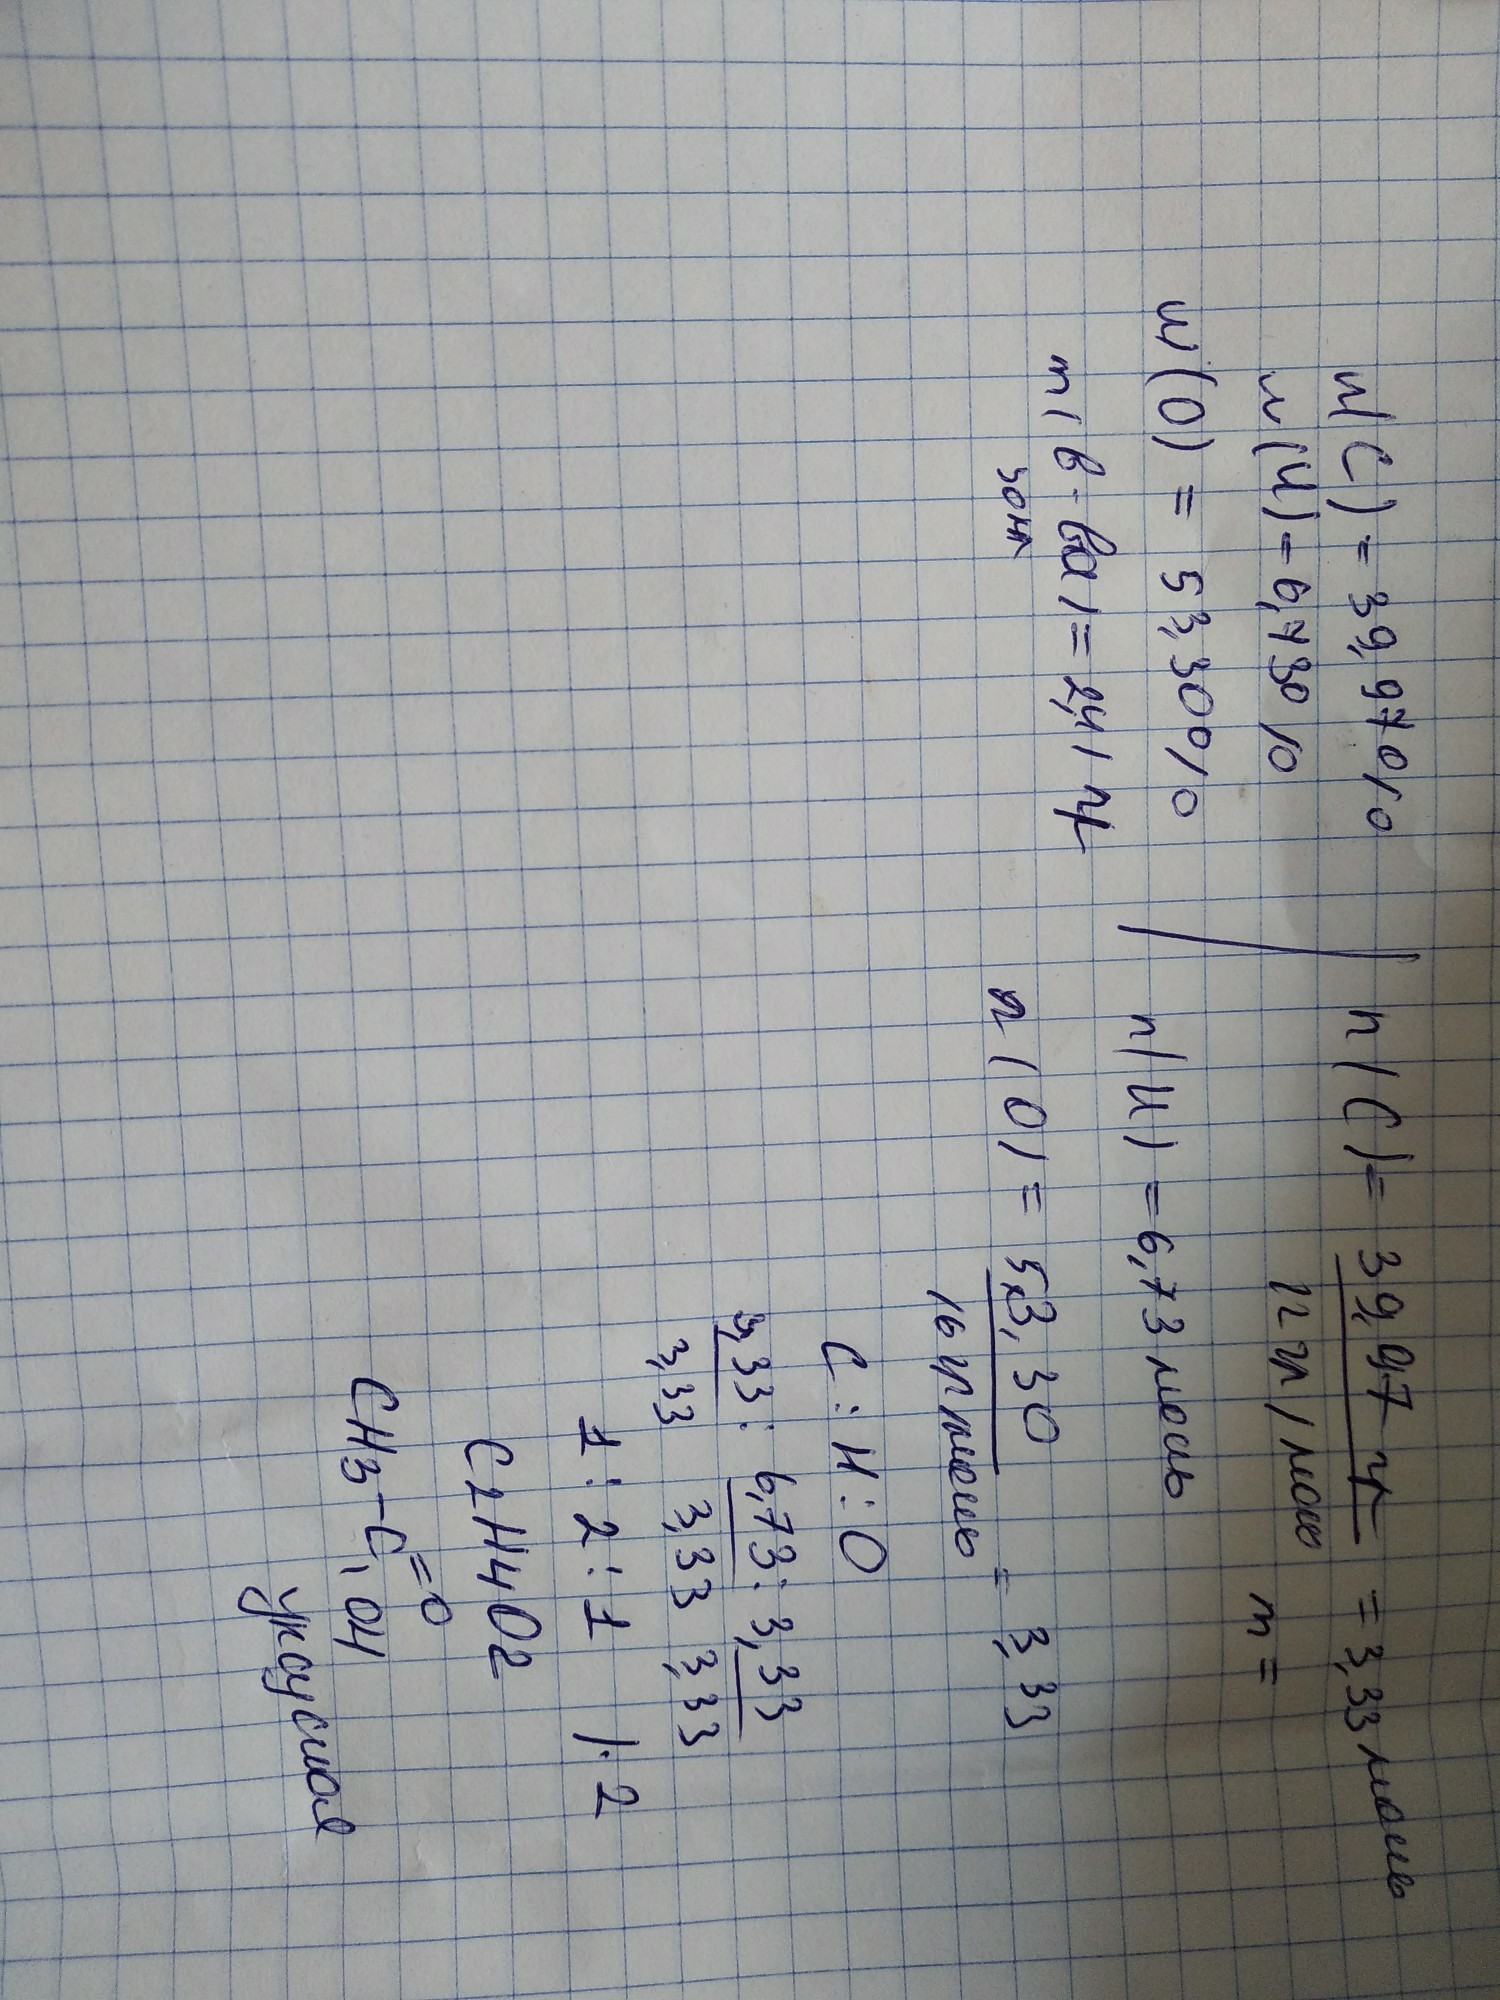 w(C) = 39,97%
w(H) = 6,73%
w(O) = 53,30%
m(в-ва) = 2,41 г
n(C) = 39,97 г / 12 г/моль = 3,33 моль
m =
n(H) = 6,73 моль
n(O) = 53,30 / 16 г/моль = 3,33
C : H : O
3,33 : 6,73 : 3,33
3,33 3,33 3,33
1 : 2 : 1 /·2
C2H4O2
CH3-C=O
OH
уксусная